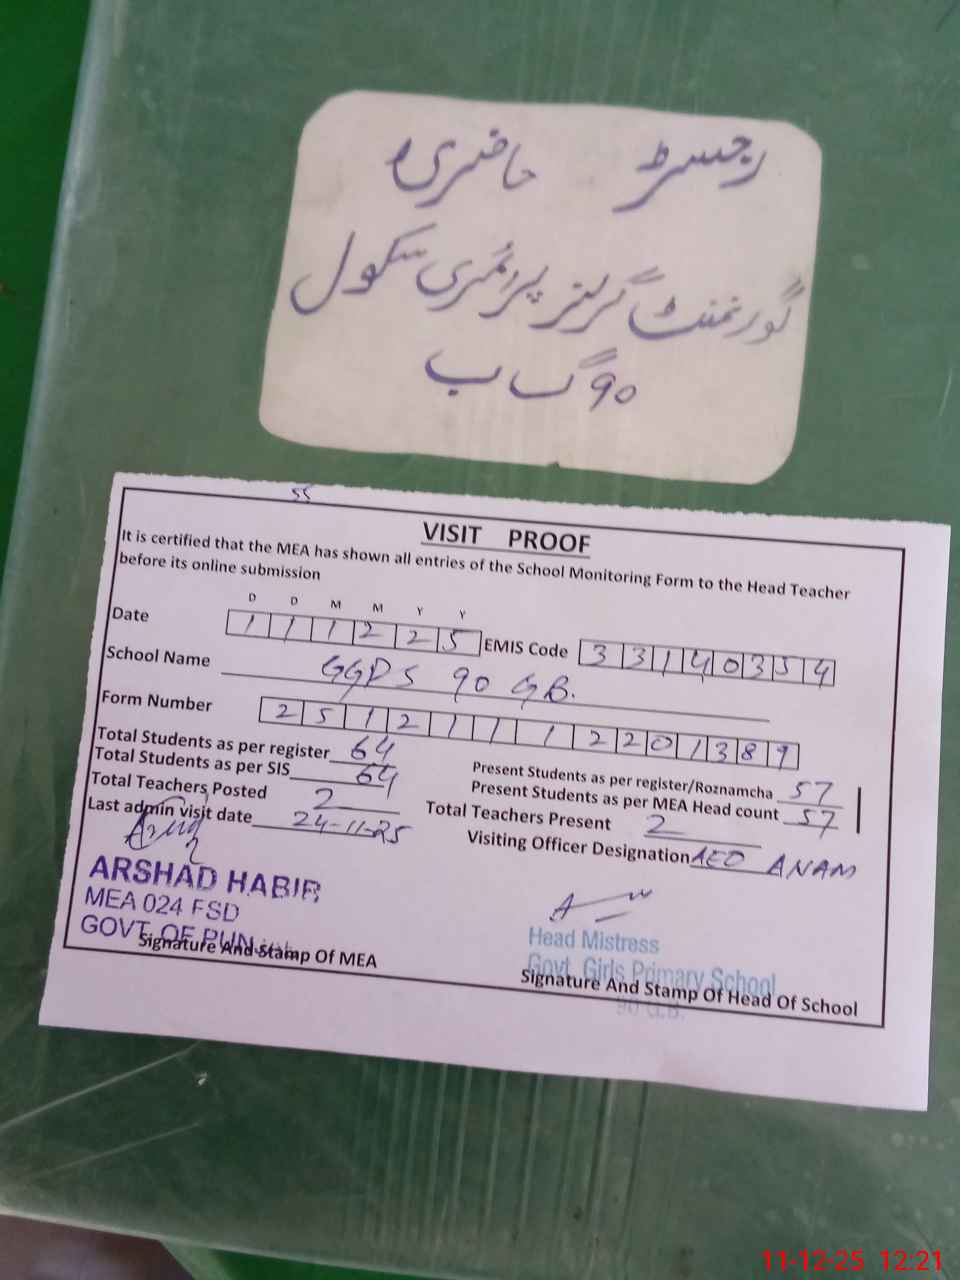 رجسٹر حاضری
گورنمنٹ گرلز پرائمری سکول
90 گ ب
55
VISIT PROOF
It is certified that the MEA has shown all entries of the School Monitoring Form to the Head Teacher
before its online submission
D D M M Y Y
Date 111225 EMIS Code 33140354
School Name GGPS 90 GB.
Form Number 25121112201389
Total Students as per register 64
Total Students as per SIS 64
Present Students as per register/Roznamcha 57
Present Students as per MEA Head count 57
Total Teachers Posted 2
Total Teachers Present 2
Last admin visit date 24-11-25
Visiting Officer Designation AEO ANAM
ARSHAD HABIB
MEA 024 FSD
GOVT. OF PUNJAB
Signature And Stamp Of MEA
Head Mistress
Govt. Girls Primary School
90 G.B.
Signature And Stamp Of Head Of School
11-12-25 12:21